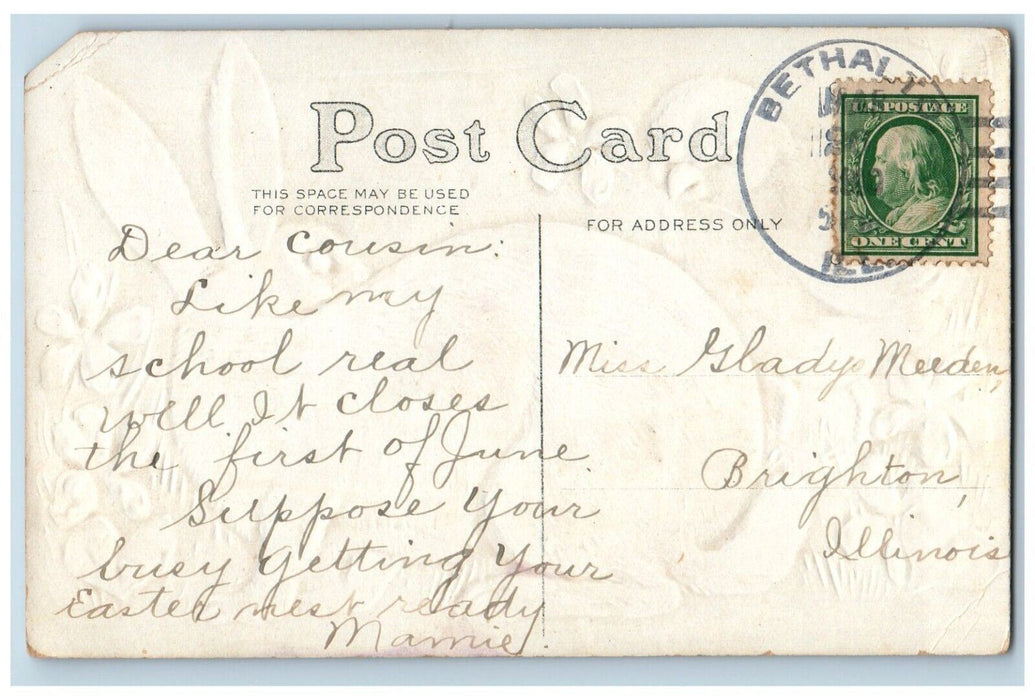 Post Card
THIS SPACE MAY BE USED
FOR CORRESPONDENCE
FOR ADDRESS ONLY
BETHAL
ILL
U.S. POSTAGE
ONE CENT
Dear Cousin:
Like my
school real
well It closes
the first of June
Suppose Your
busy getting Your
Easter nest ready
Mamie.
Miss Gladys Meeden,
Brighton,
Illinois